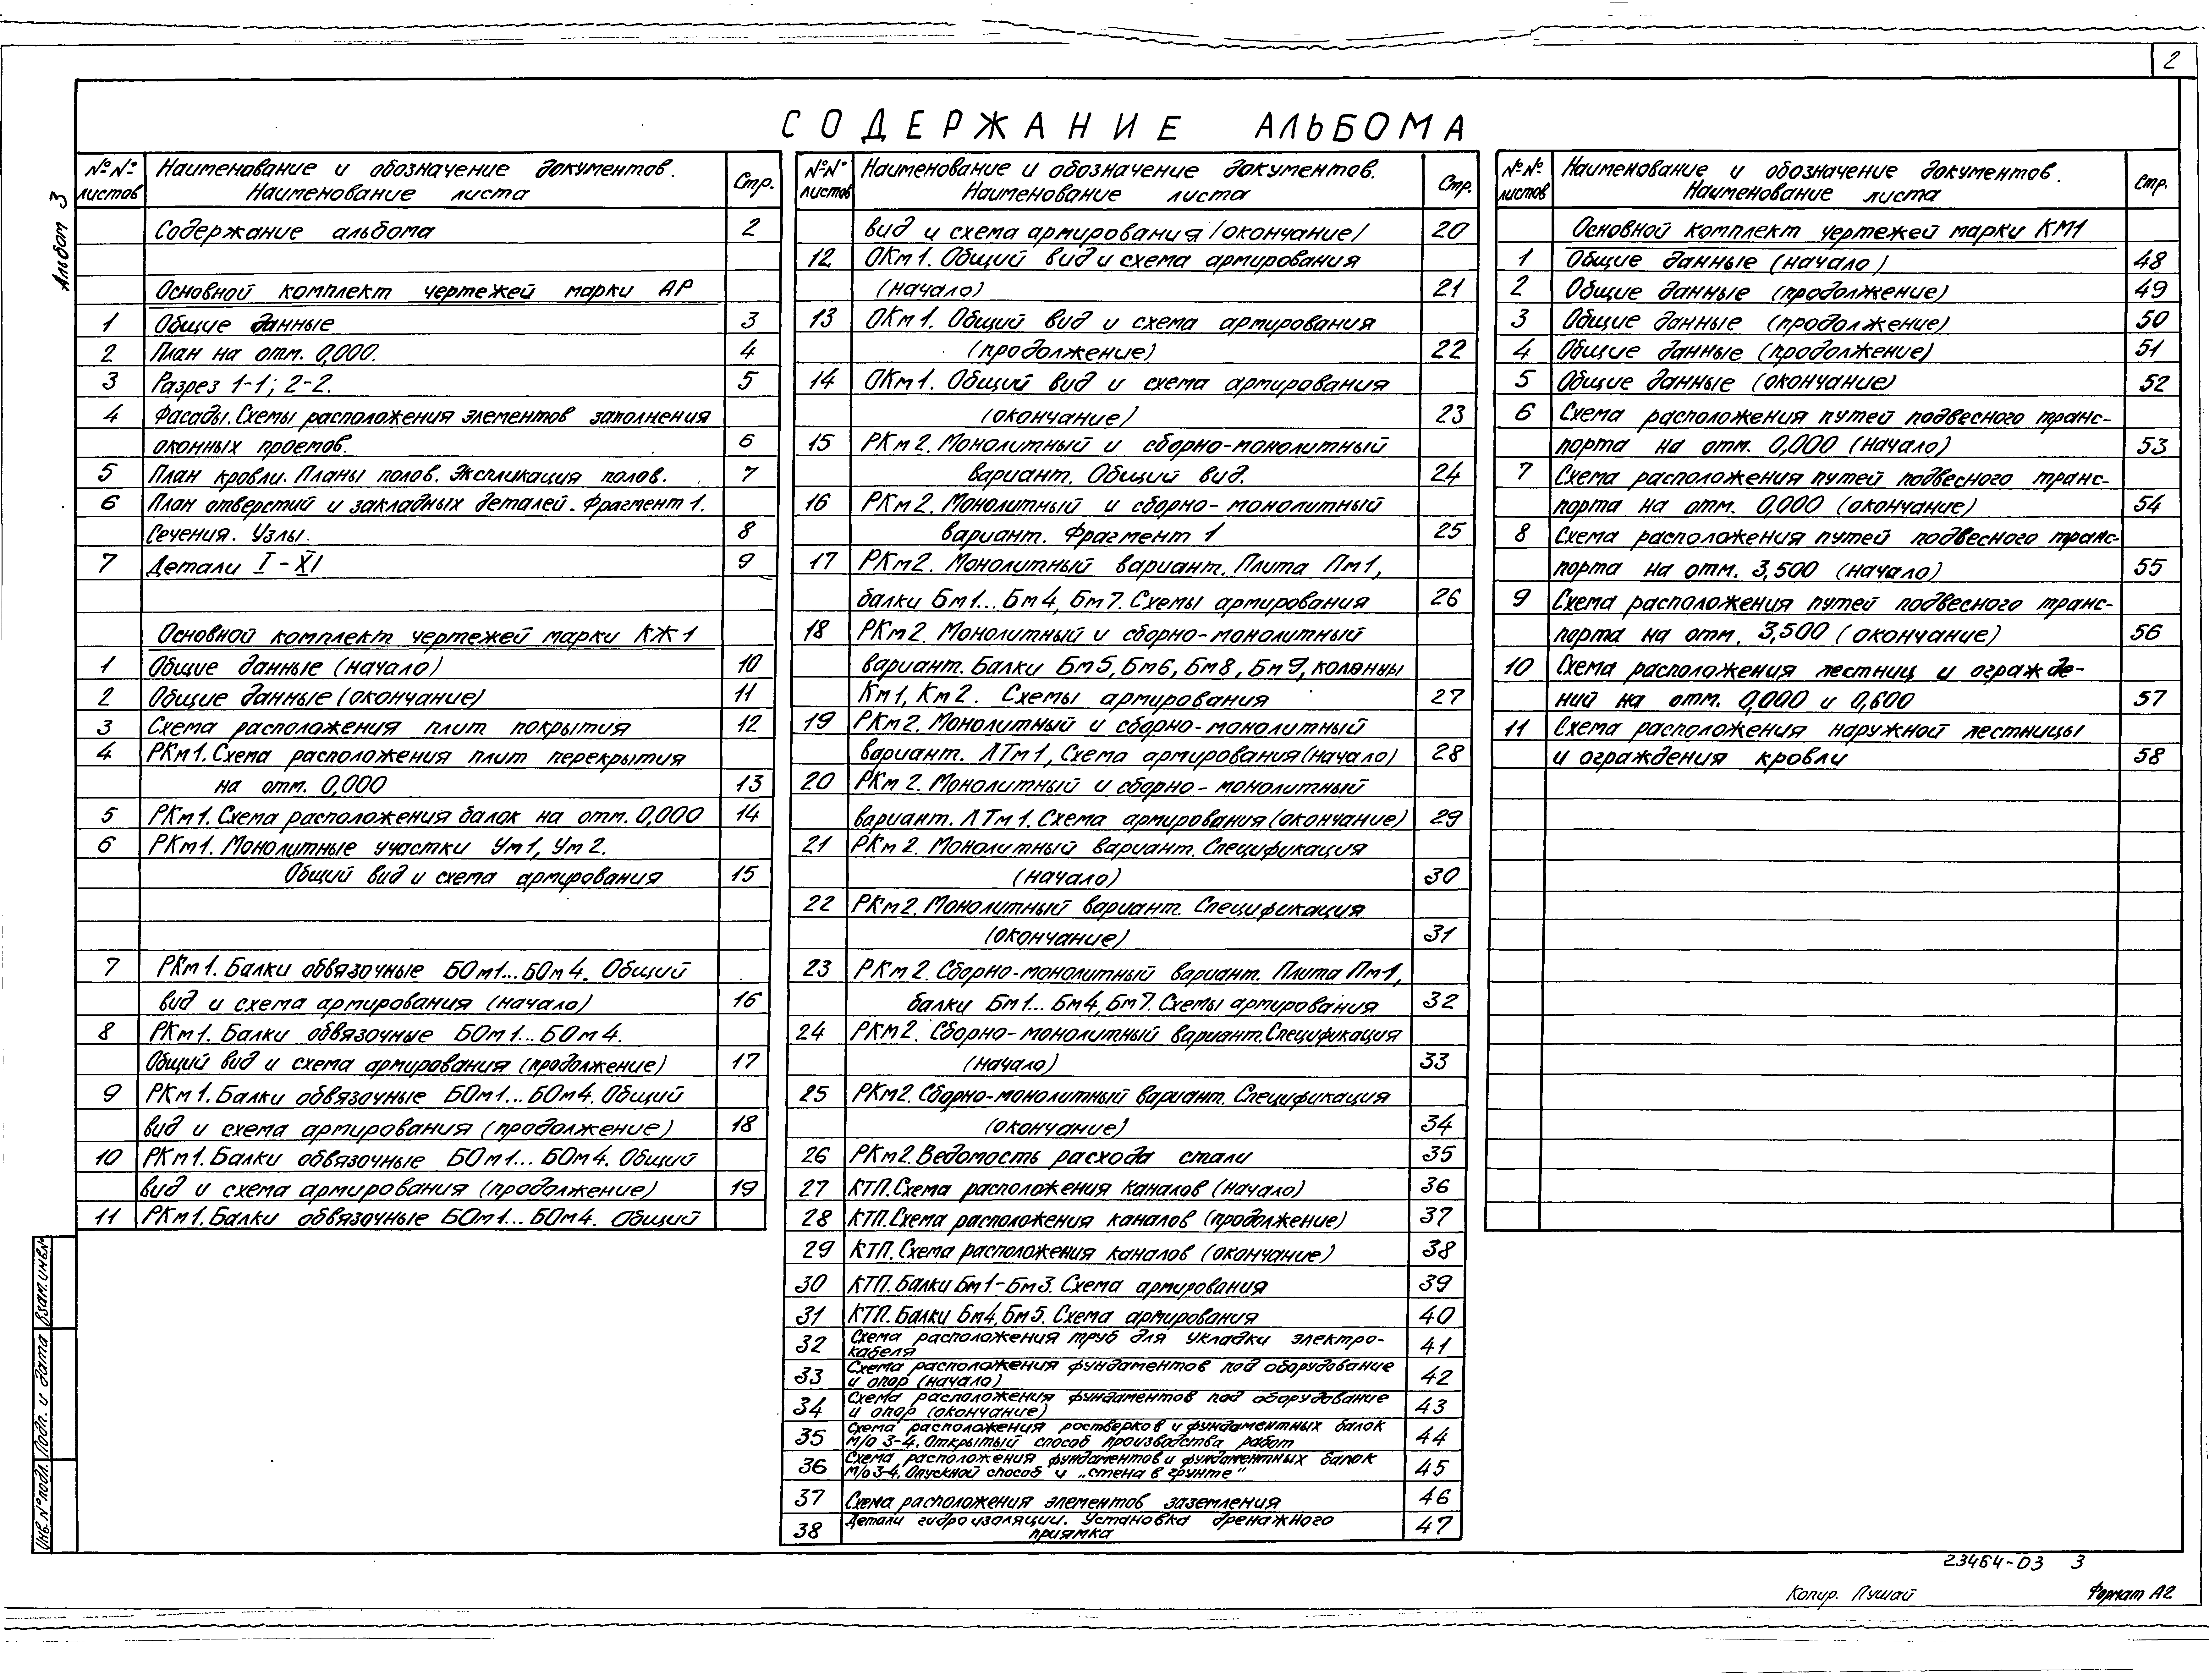 2
СОДЕРЖАНИЕ АЛЬБОМА
Альбом 3
№№ листов
Наименование и обозначение документов.
Наименование листа
Стр.
Содержание альбома 2
Основной комплект чертежей марки АР
1 Общие данные 3
2 План на отм. 0,000. 4
3 Разрез 1-1; 2-2. 5
4 Фасады. Схемы расположения элементов заполнения
оконных проемов. 6
5 План кровли. Планы полов. Экспликация полов. 7
6 План отверстий и закладных деталей. Фрагмент 1.
Сечения. Узлы. 8
7 Детали I - XI 9
Основной комплект чертежей марки КЖ1
1 Общие данные (начало) 10
2 Общие данные (окончание) 11
3 Схема расположения плит покрытия 12
4 РКм1. Схема расположения плит перекрытия
на отм. 0,000 13
5 РКм1. Схема расположения балок на отм. 0,000 14
6 РКм1. Монолитные участки Ум1, Ум2.
Общий вид и схема армирования 15
7 РКм1. Балки обвязочные БОм1...БОм4. Общий
вид и схема армирования (начало) 16
8 РКм1. Балки обвязочные БОм1...БОм4.
Общий вид и схема армирования (продолжение) 17
9 РКм1. Балки обвязочные БОм1...БОм4. Общий
вид и схема армирования (продолжение) 18
10 РКм1. Балки обвязочные БОм1...БОм4. Общий
вид и схема армирования (продолжение) 19
11 РКм1. Балки обвязочные БОм1...БОм4. Общий
№№ листов
Наименование и обозначение документов.
Наименование листа
Стр.
вид и схема армирования /окончание/ 20
12 ОКм1. Общий вид и схема армирования
(начало) 21
13 ОКм1. Общий вид и схема армирования
(продолжение) 22
14 ОКм1. Общий вид и схема армирования
(окончание) 23
15 РКм2. Монолитный и сборно-монолитный
вариант. Общий вид. 24
16 РКм2. Монолитный и сборно-монолитный
вариант. Фрагмент 1 25
17 РКм2. Монолитный вариант. Плита Пм1,
балки Бм1...Бм4, Бм7. Схемы армирования 26
18 РКм2. Монолитный и сборно-монолитный
вариант. Балки Бм5, Бм6, Бм8, Бм9, колонны
Км1, Км2. Схемы армирования 27
19 РКм2. Монолитный и сборно-монолитный
вариант. ЛТм1, Схема армирования (начало) 28
20 РКм2. Монолитный и сборно-монолитный
вариант. ЛТм1. Схема армирования (окончание) 29
21 РКм2. Монолитный вариант. Спецификация
(начало) 30
22 РКм2. Монолитный вариант. Спецификация
(окончание) 31
23 РКм2. Сборно-монолитный вариант. Плита Пм1,
балки Бм1...Бм4, Бм7. Схемы армирования 32
24 РКм2. Сборно-монолитный вариант. Спецификация
(начало) 33
25 РКм2. Сборно-монолитный вариант. Спецификация
(окончание) 34
26 РКм2. Ведомость расхода стали 35
27 КТП. Схема расположения каналов (начало) 36
28 КТП. Схема расположения каналов (продолжение) 37
29 КТП. Схема расположения каналов (окончание) 38
30 КТП. Балки Бм1-Бм3. Схема армирования 39
31 КТП. Балки Бм4, Бм5. Схема армирования 40
32 Схема расположения труб для укладки электро-
кабеля 41
33 Схема расположения фундаментов под оборудование
и опор (начало) 42
34 Схема расположения фундаментов под оборудование
и опор (окончание) 43
35 Схема расположения ростверков и фундаментных балок
м/о 3-4. Открытый способ производства работ 44
36 Схема расположения фундаментов и фундаментных балок
м/о 3-4. Опускной способ и „стена в грунте" 45
37 Схема расположения элементов заземления 46
38 Детали гидроизоляции. Установка дренажного
приямка 47
№№ листов
Наименование и обозначение документов.
Наименование листа
Стр.
Основной комплект чертежей марки КМ1
1 Общие данные (начало) 48
2 Общие данные (продолжение) 49
3 Общие данные (продолжение) 50
4 Общие данные (продолжение) 51
5 Общие данные (окончание) 52
6 Схема расположения путей подвесного транс-
порта на отм. 0,000 (начало) 53
7 Схема расположения путей подвесного транс-
порта на отм. 0,000 (окончание) 54
8 Схема расположения путей подвесного транс-
порта на отм. 3,500 (начало) 55
9 Схема расположения путей подвесного транс-
порта на отм. 3,500 (окончание) 56
10 Схема расположения лестниц и огражде-
ний на отм. 0,000 и 0,600 57
11 Схема расположения наружной лестницы
и ограждения кровли 58
Инв.№подл. Подп. и дата Взам.инв.№
23464-03 3
Копир. Пушай Формат А2